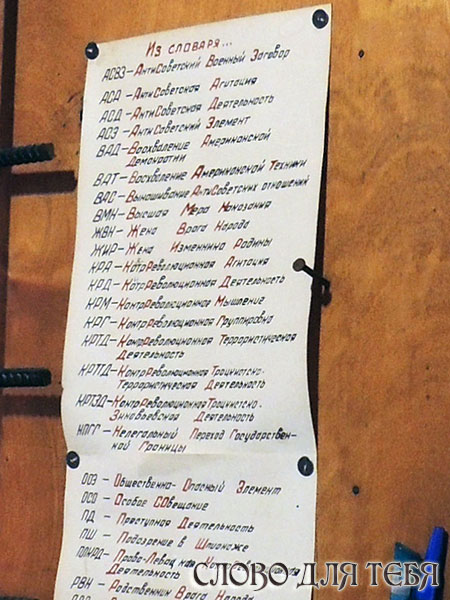 Из словаря...
АСВЗ – АнтиСоветский Военный Заговор
АСА – АнтиСоветская Агитация
АСД – АнтиСоветская Деятельность
АСЭ – АнтиСоветский Элемент
ВАД – Восхваление Американской
Демократии
ВАТ – Восхваление Американской Техники
ВАС – Вынашивание АнтиСоветских отношений
ВМН – Высшая Мера Наказания
ЖВН – Жена Врага Народа
ЖИР – Жена Изменника Родины
КРА – КотрРеволюционная Агитация
КРД – КотрРеволюционная Деятельность
КРМ – КонтрРеволюционное Мышление
КРГ – КонтрРеволюционная Группировка
КРТД – КонтрРеволюционная Террористическая
Деятельность
КРТТД – КонтрРеволюционная Троцкистско-
Террористическая Деятельность
КРТЗД – КонтрРеволюционная Троцкистско-
Зиновьевская Деятельность
НПГГ – Нелегальный Переход Государствен-
ной Границы
ОСЭ – Общественно-Опасный Элемент
ОСО – Особое СОвещание
ПД – Преступная Деятельность
ПШ – Подозрение в Шпионаже
Право-Левац
Деятельность
РВН – Родственник Врага Народа
СЛОВО ДЛЯ ТЕБЯ